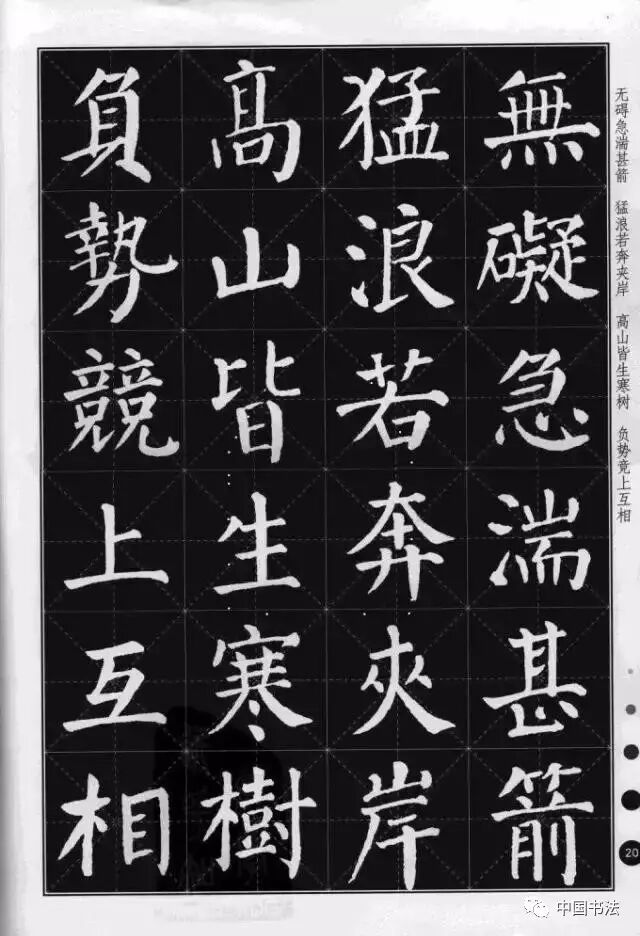 无碍急湍甚箭 猛浪若奔夹岸 高山皆生寒树 负势竟上互相
無礙急湍甚箭
猛浪若奔夾岸
髙山皆生寒樹
負勢競上互相
20
中国书法